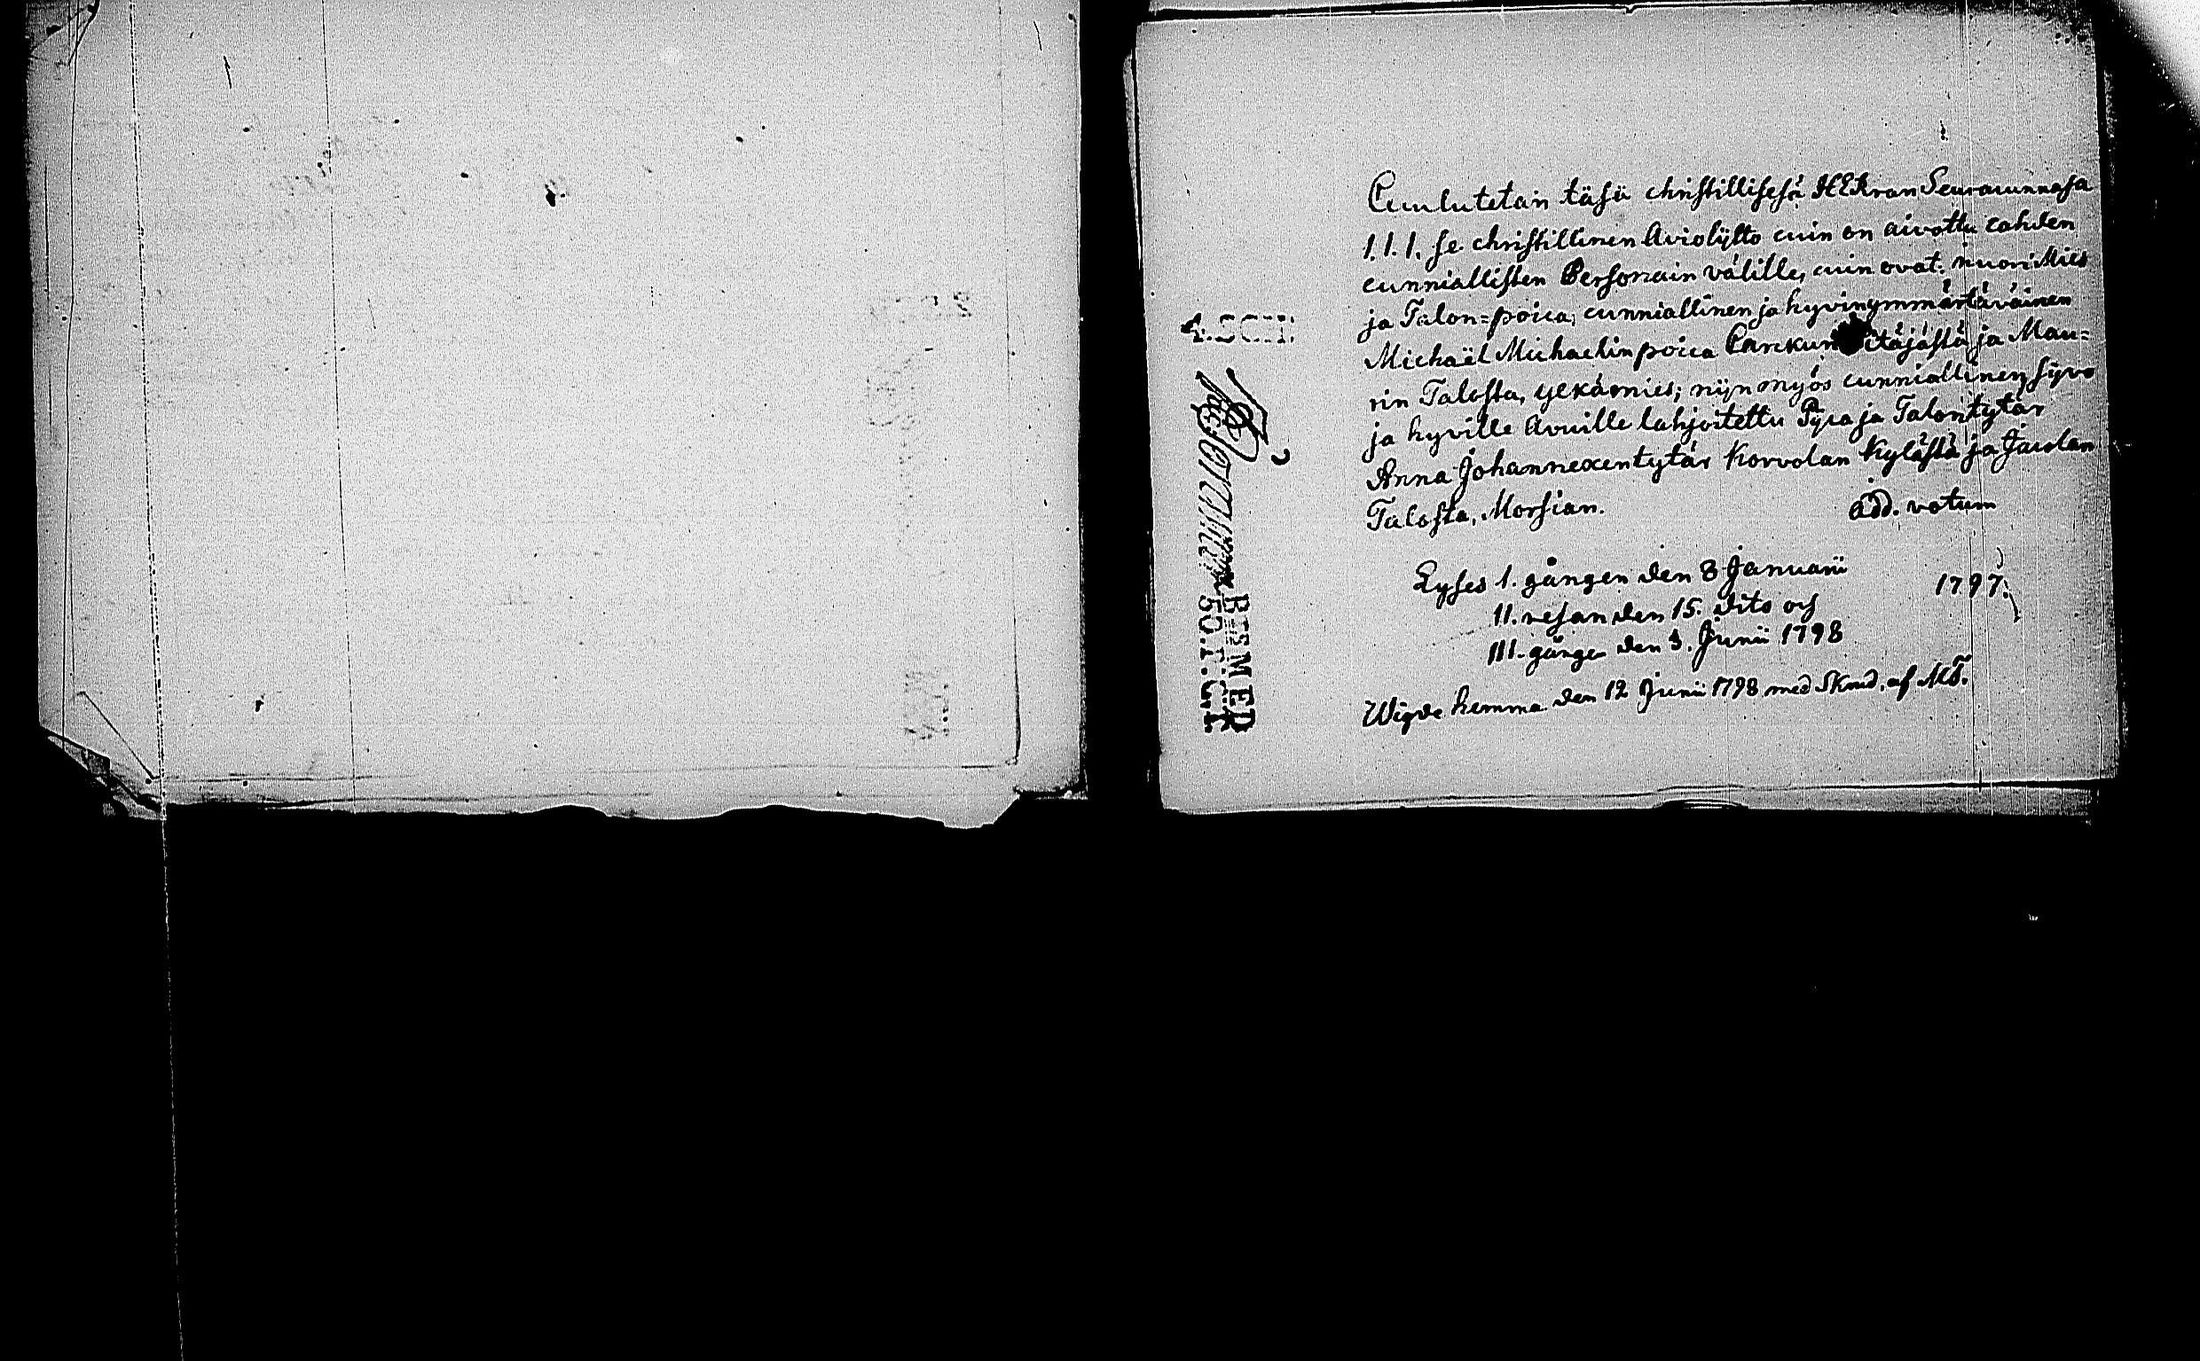 Cuulutetan täsä christillisesä HERran Seuracunnasa
1. 1. 1. se christillinen Aviolijtto cuin on aivottu cahden
cunniallisten Personain välille, cuin ovat: nuori Mies
ja Talon=poica, cunniallinen ja hyvinymmärtäväinen
Michaël Michaelinpoica Carckun itäjästä ja Mau=
rin Talosta, yckämies; nijn myös cunniallinen, sijvo
ja hyville Avuille lahjoitettu Pijca ja Talontytär
Anna Johannexentytär Korvolan Kylästä ja Jaulan
Talosta, Morsian. add. votum
Lyses 1. gången den 8 Januarii 1797.
11. resan den 15. dito och
111. gången den 3. Junii 1798
Wigde hemma den 12 Junii 1798 med Skrud. af MT.
4.SCH:
BREMER
50.T.G.R